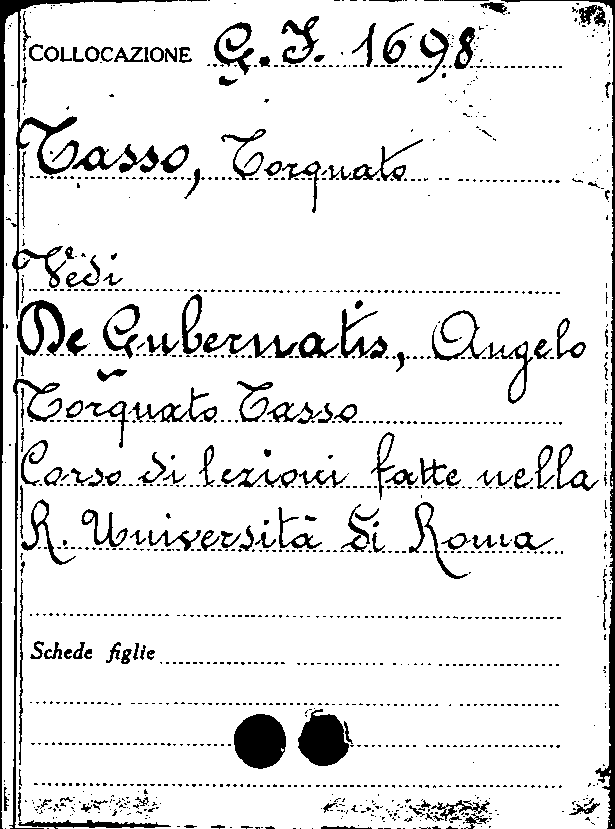 COLLOCAZIONE G. I. 1698
Tasso, Torquato
Vedi
De Gubernatis, Angelo
Torquato Tasso
Corso di lezioni fatte nella
R. Università di Roma
Schede figlie